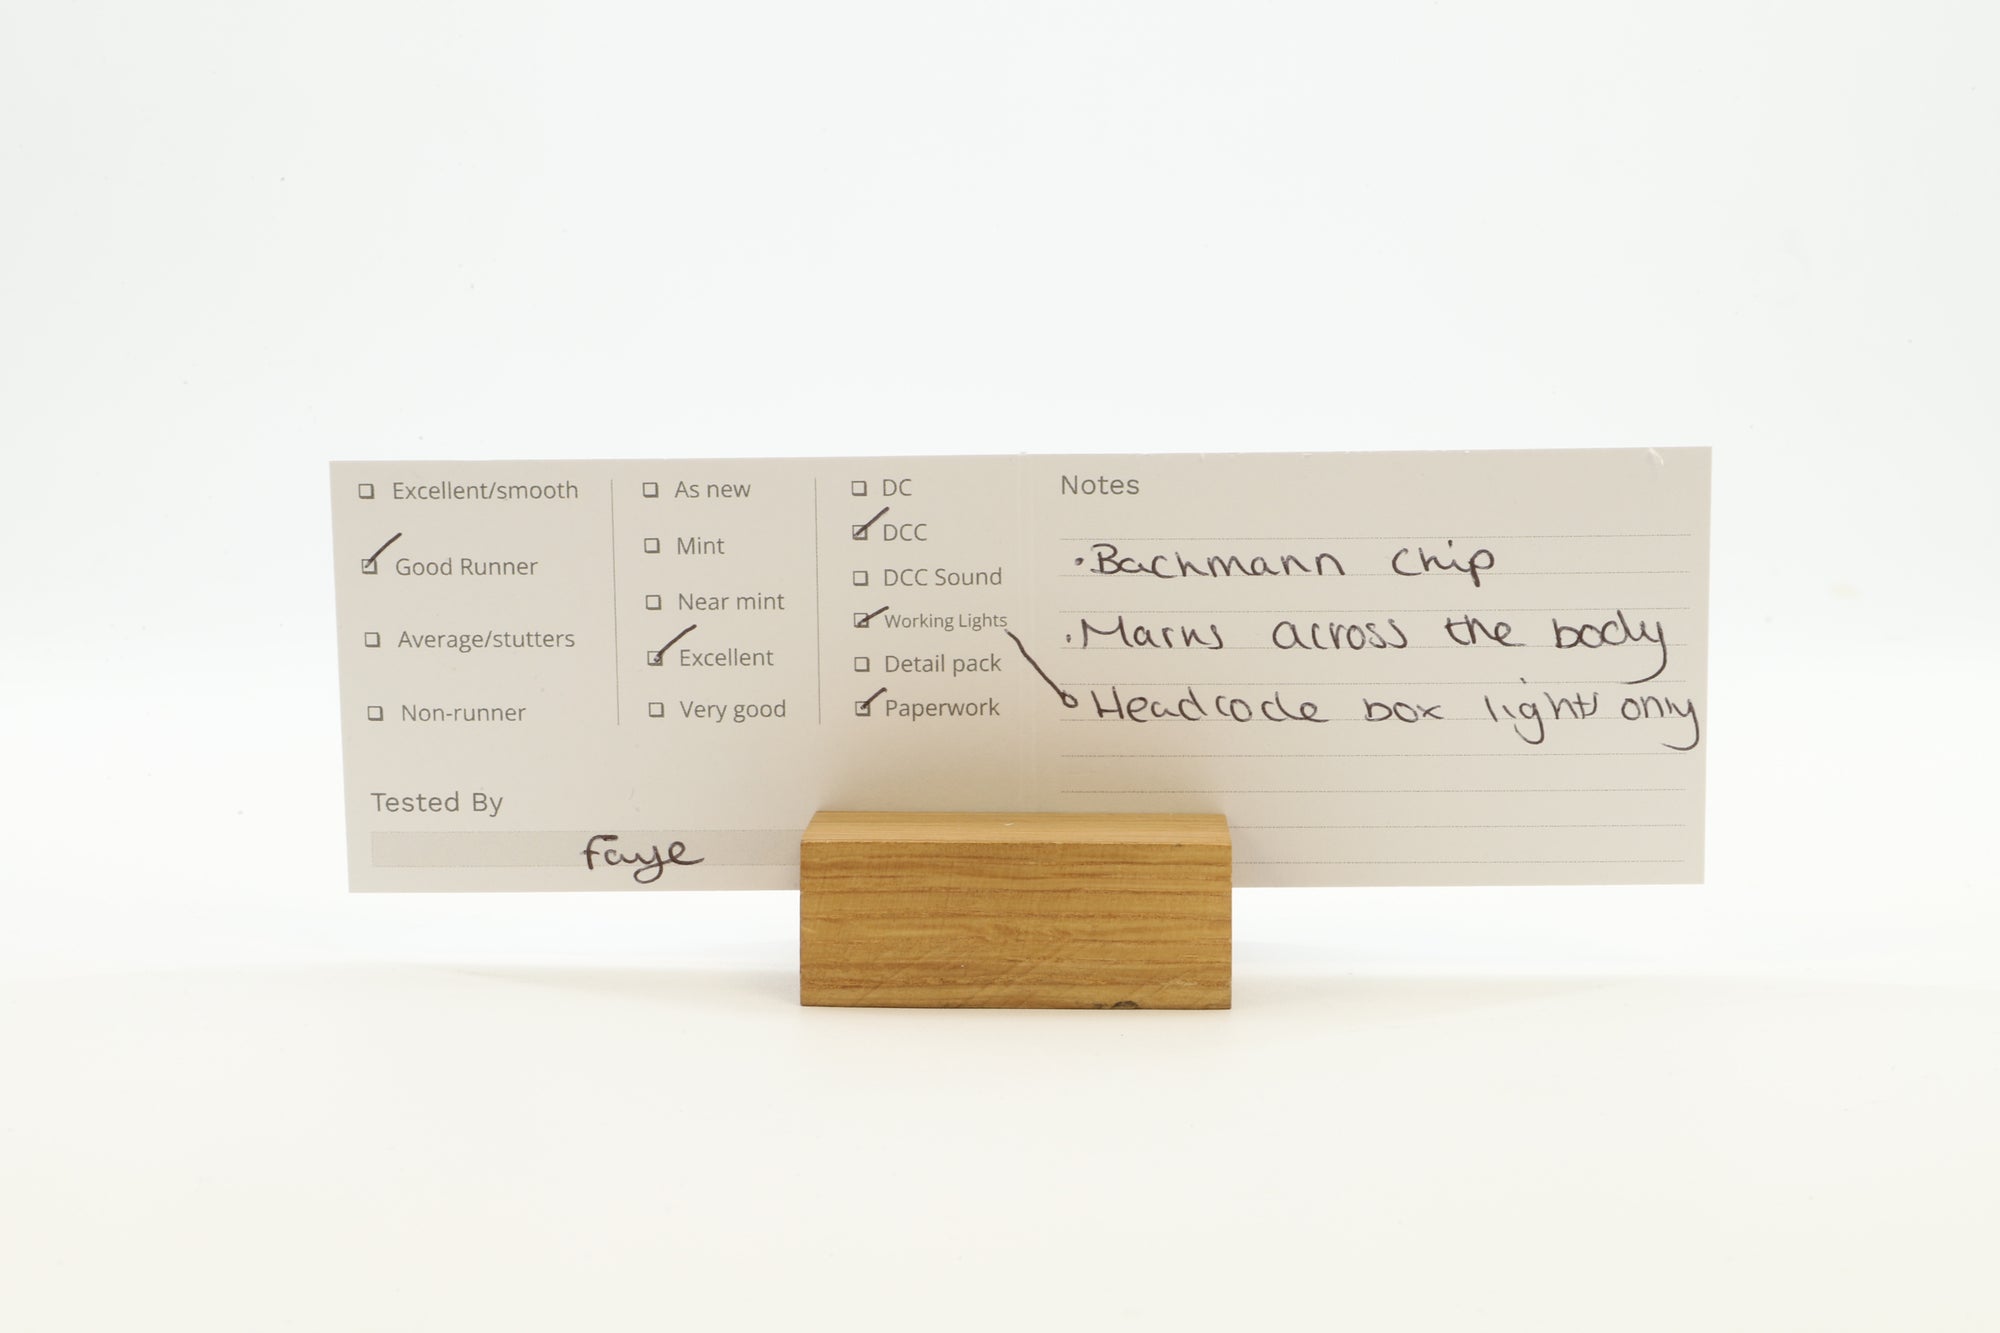 Excellent/smooth
Good Runner
Average/stutters
Non-runner
As new
Mint
Near mint
Excellent
Very good
DC
DCC
DCC Sound
Working Lights
Detail pack
Paperwork
Tested By
Faye
Notes
·Bachmann chip
·Marks across the body
Headcode box lights only